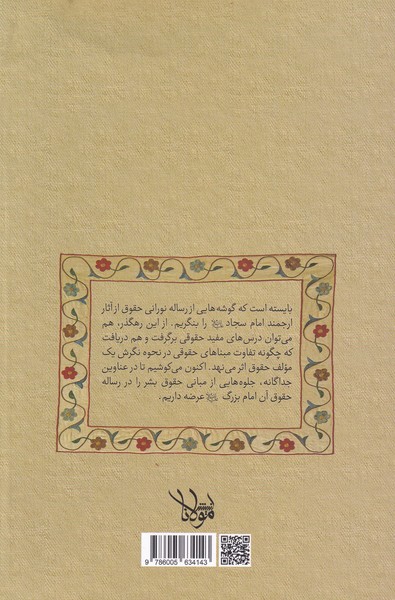 بایسته است که گوشه‌هایی از رساله نورانی حقوق از آثار
ارجمند امام سجاد را بنگریم. از این رهگذر، هم
می‌توان درس‌های مفید حقوقی برگرفت و هم دریافت
که چگونه تفاوت مبناهای حقوقی در نحوه نگرش یک
مؤلف حقوق اثر می‌نهد. اکنون می‌کوشیم تا در عناوین
جداگانه، جلوه‌هایی از مبانی حقوق بشر را در رساله
حقوق آن امام بزرگ عرضه داریم.
9 786005 634143